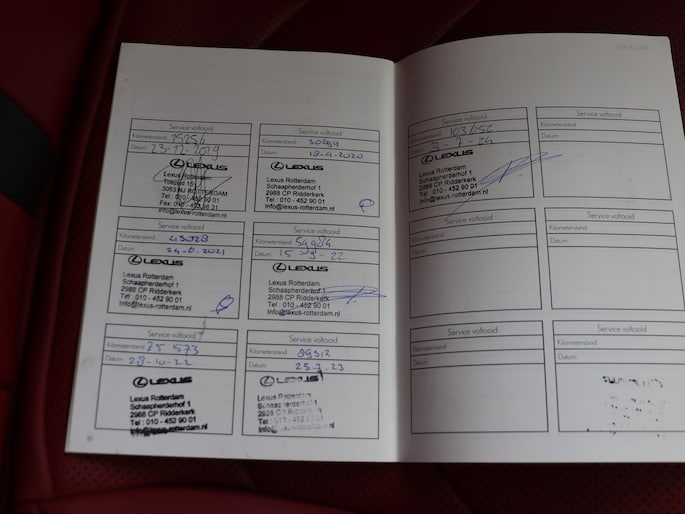 LEXUS CARE
Service voltooid
Kilometerstand: 15256
Datum: 23-12-2019
LEXUS
Lexus Rotterdam
3053 NJ ROTTERDAM
Tel: 010 - 452 90 01
info@lexus-rotterdam.nl
Service voltooid
Kilometerstand: 30699
Datum: 18-9-2020
LEXUS
Lexus Rotterdam
Schaapherderhof 1
2988 CP Ridderkerk
Tel : 010 - 452 90 01
info@lexus-rotterdam.nl
Service voltooid
Kilometerstand: 45028
Datum: 24.6.2021
LEXUS
Lexus Rotterdam
Schaapherderhof 1
2988 CP Ridderkerk
Tel : 010 - 452 90 01
info@lexus-rotterdam.nl
Service voltooid
Kilometerstand: 59984
Datum: 15-3-22
LEXUS
Lexus Rotterdam
Schaapherderhof 1
2988 CP Ridderkerk
Tel : 010 - 452 90 01
info@lexus-rotterdam.nl
Service voltooid
Kilometerstand: 75 573
Datum: 28-10-22
LEXUS
Lexus Rotterdam
Schaapherderhof 1
2988 CP Ridderkerk
Tel : 010 - 452 90 01
info@lexus-rotterdam.nl
Service voltooid
Kilometerstand: 89512
Datum: 25.7.23
LEXUS
Lexus Rotterdam
Schaapherderhof 1
2988 CP Ridderkerk
Tel : 010 - 452
Service voltooid
Kilometerstand: 103652
Datum: 3-7-24
LEXUS
Lexus Rotterdam
Schaapherderhof 1
2988 CP Ridderkerk
Tel : 010 - 452 90 01
info@lexus-rotterdam.nl
Service voltooid
Kilometerstand:
Datum:
Service voltooid
Kilometerstand:
Datum:
Service voltooid
Kilometerstand:
Datum:
Service voltooid
Kilometerstand:
Datum:
Service voltooid
Kilometerstand:
Datum: